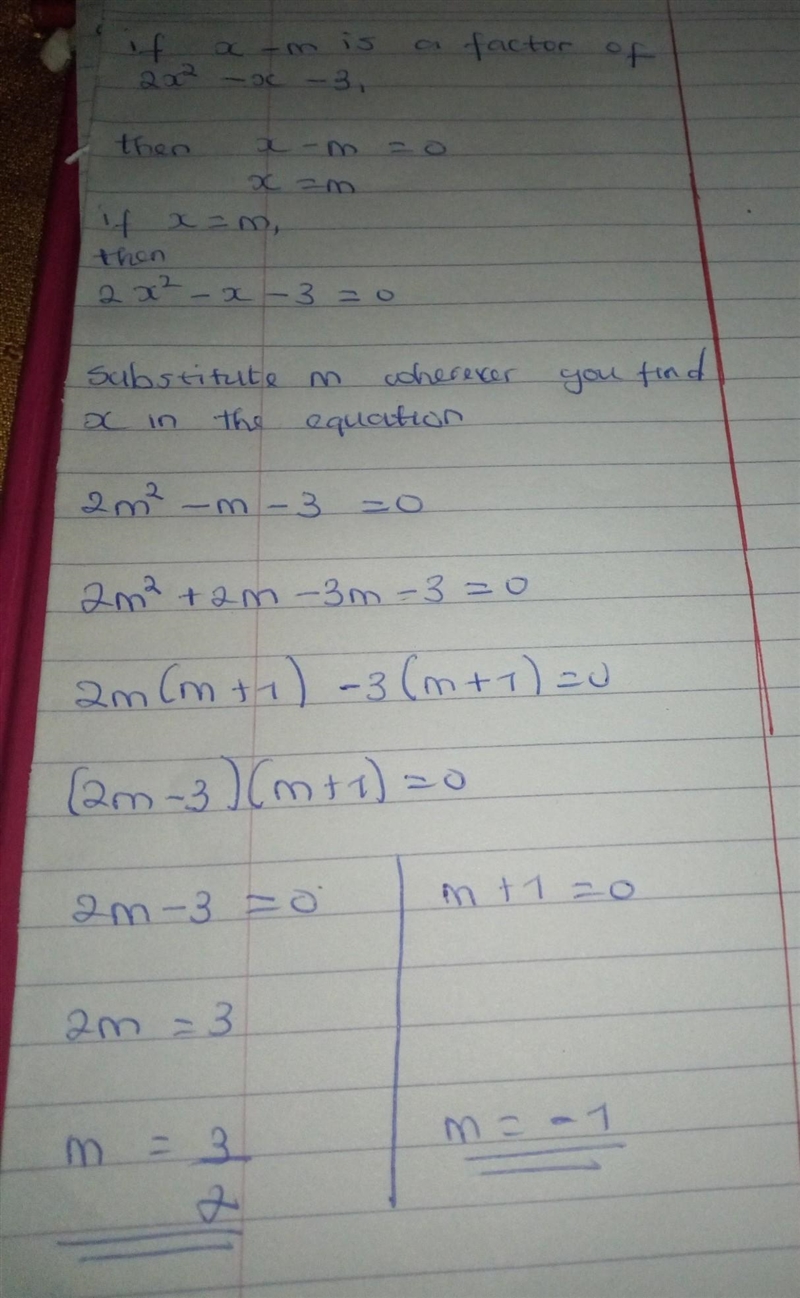 if x - m is a factor of
2x² - x - 3,
then x - m = 0
x = m
if x = m,
then
2x² - x - 3 = 0
substitute m wherever you find
x in the equation
2m² - m - 3 = 0
2m² + 2m - 3m - 3 = 0
2m(m + 1) - 3(m + 1) = 0
(2m - 3)(m + 1) = 0
2m - 3 = 0 m + 1 = 0
2m = 3
m = 3/2 m = -1